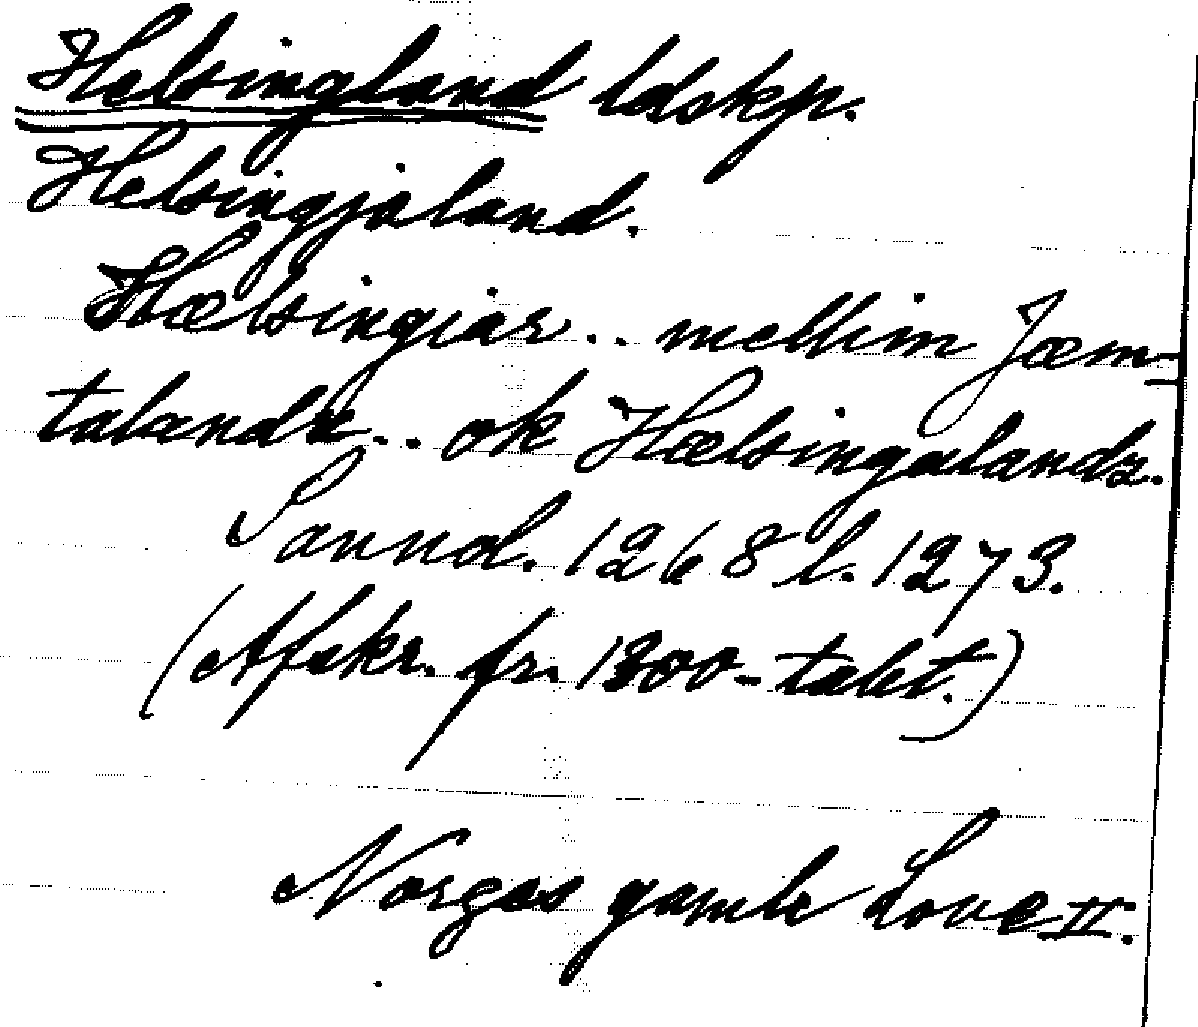 Helsingland ldskp.
Helsingjaland.
Hælsingiar .. mellim Jæm-
talandz .. ok Hælsingalandz.
Sannol. 1268 l. 1273.
(Afskr. fr. 1300-talet.)
Norges gamle Love II.